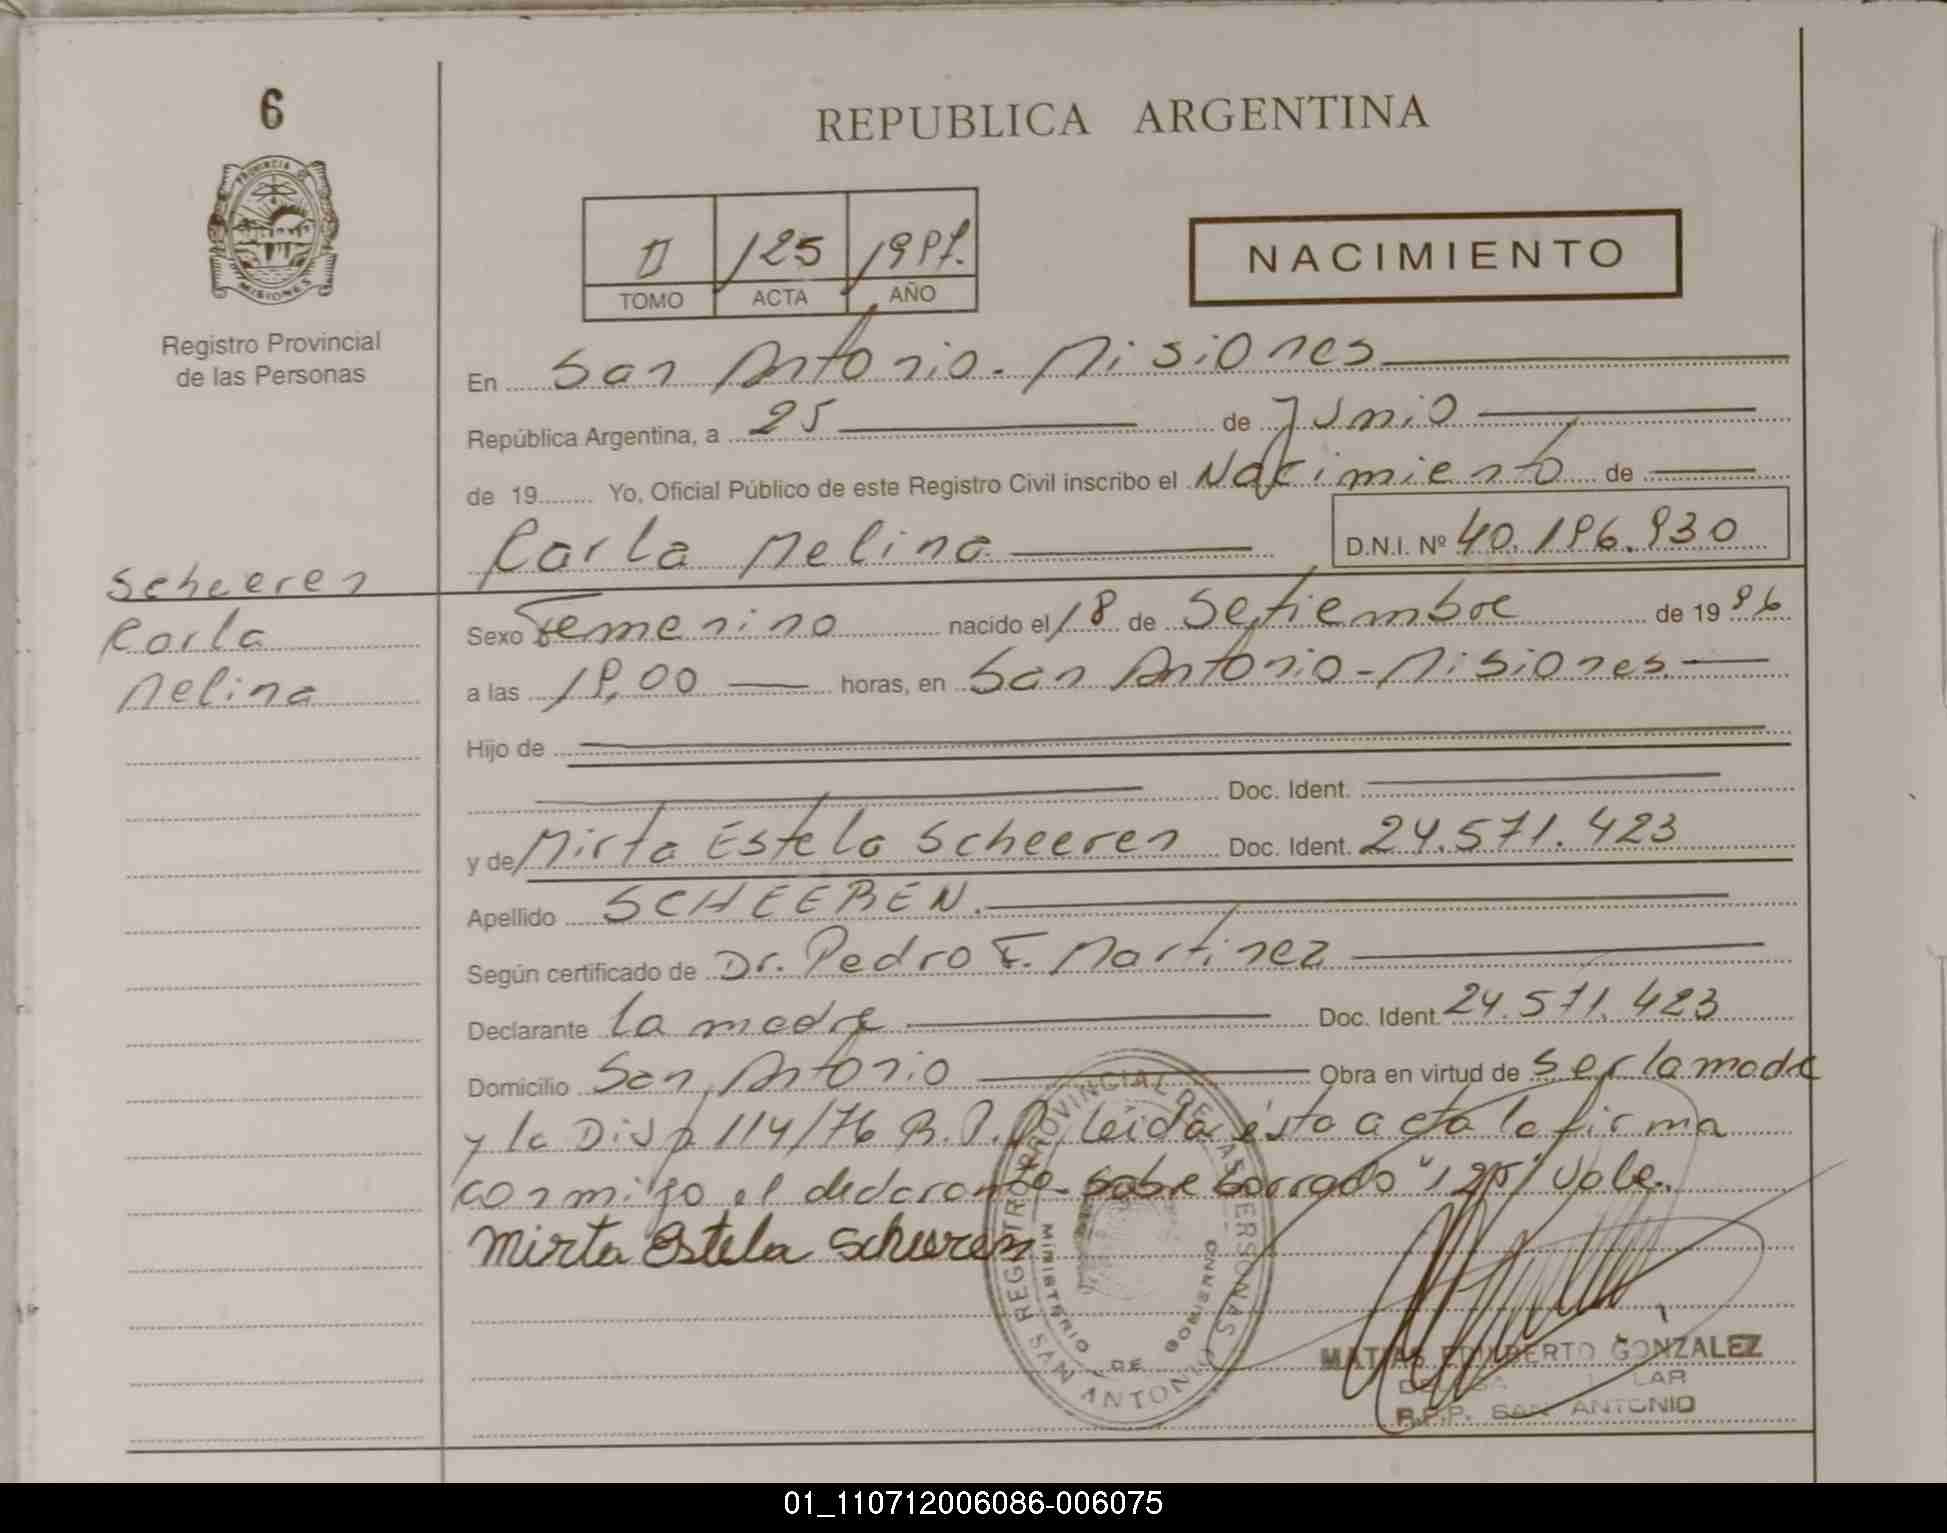 6
REPUBLICA ARGENTINA
PROVINCIA DE
MISIONES
Registro Provincial
de las Personas
II 125 1997.
TOMO ACTA AÑO
NACIMIENTO
En San Antonio - Misiones
República Argentina, a 25 de Junio
de 19 Yo, Oficial Público de este Registro Civil inscribo el Nacimiento de
Carla Melina D.N.I. Nº 40.196.930
Scheeren
Carla
Melina
Sexo Femenino nacido el 18 de Setiembre de 19 96
a las 19,00 horas, en San Antonio - Misiones
Hijo de
Doc. Ident.
y de Mirta Estela Scheeren Doc. Ident. 24.571.423
Apellido SCHEEREN.
Según certificado de Dr. Pedro F. Martinez
Declarante La madre Doc. Ident. 24.571.423
Domicilio San Antonio Obra en virtud de ser la madre
y la Disp. 114/76 R.P.P. Leída ésta acta la firma
conmigo el declarante - sobre borrado "125" Vale.
Mirta Estela Scheeren
REGISTRO PROVINCIAL DE LAS PERSONAS
MINISTERIO DE GOBIERNO
SAN ANTONIO
MATIAS EDILBERTO GONZALEZ
R.P.P. SAN ANTONIO
01_110712006086-006075